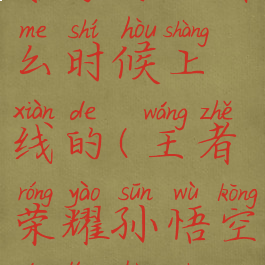 me shí hòu shàng
么时候上
xiàn de wáng zhě
线的(王者
róng yào sūn wù kōng
荣耀孙悟空